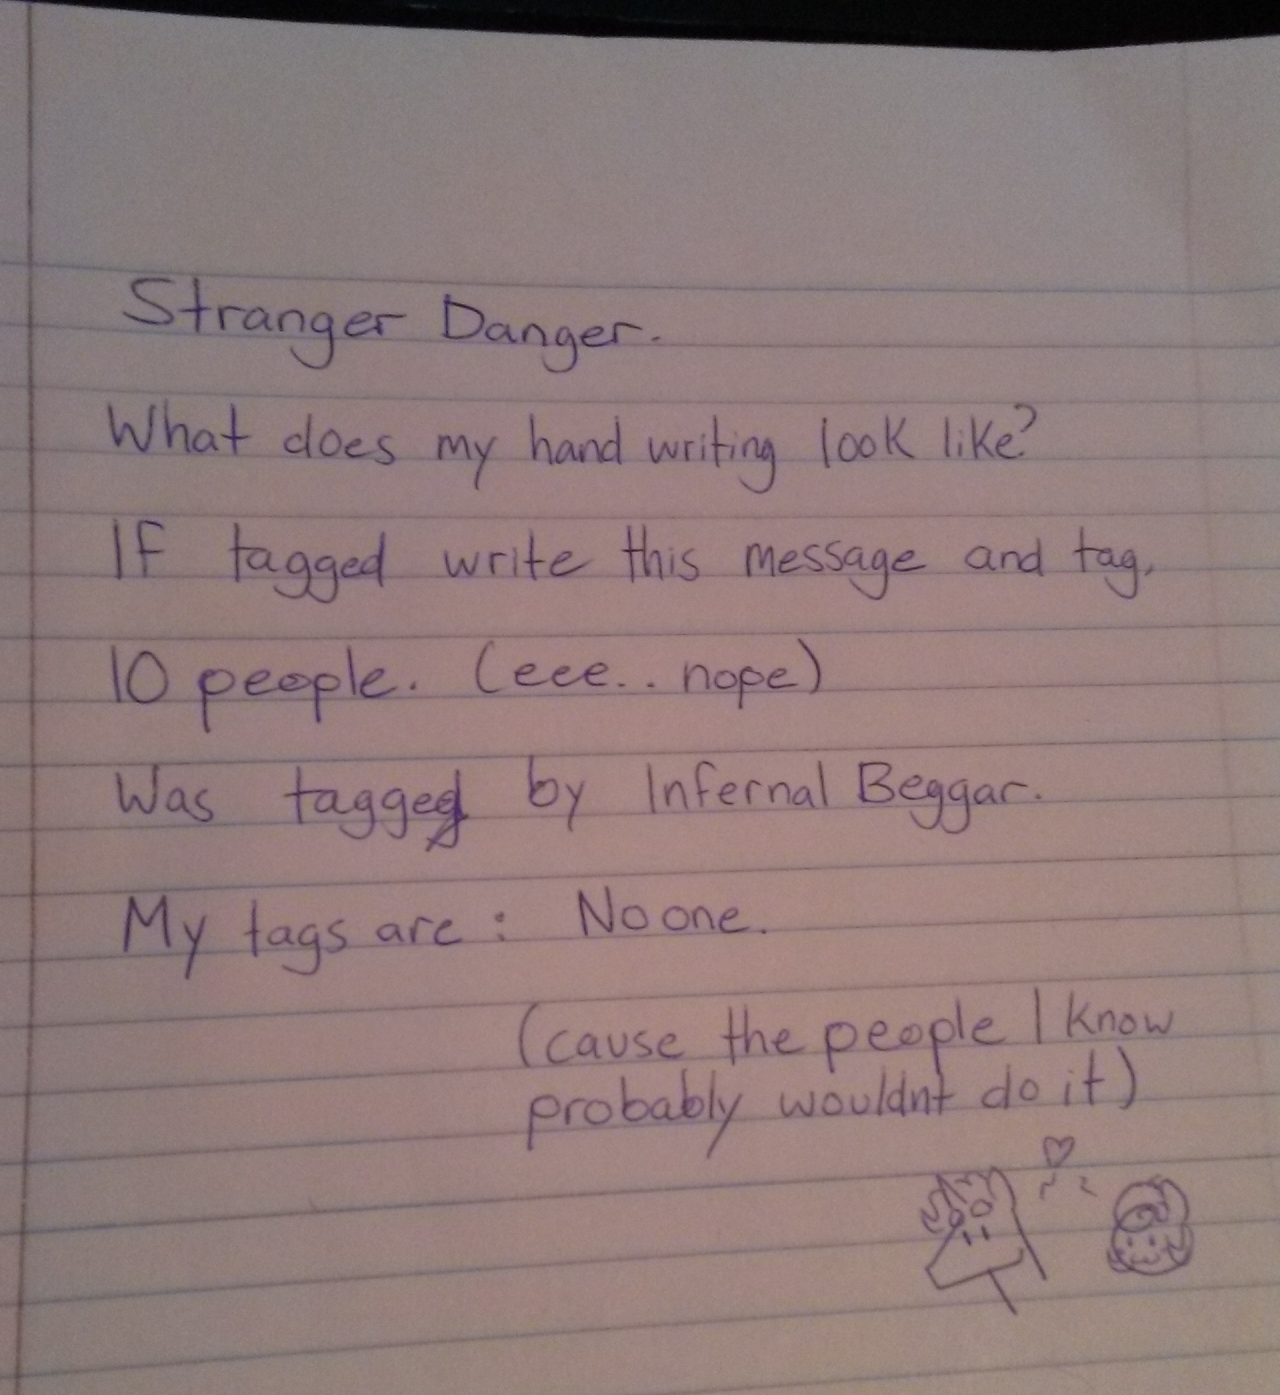 Stranger Danger.
What does my hand writing look like?
If tagged write this message and tag,
10 people. (eee.. nope)
Was tagged by Infernal Beggar.
My tags are : No one.
(cause the people I know
probably wouldnt do it)